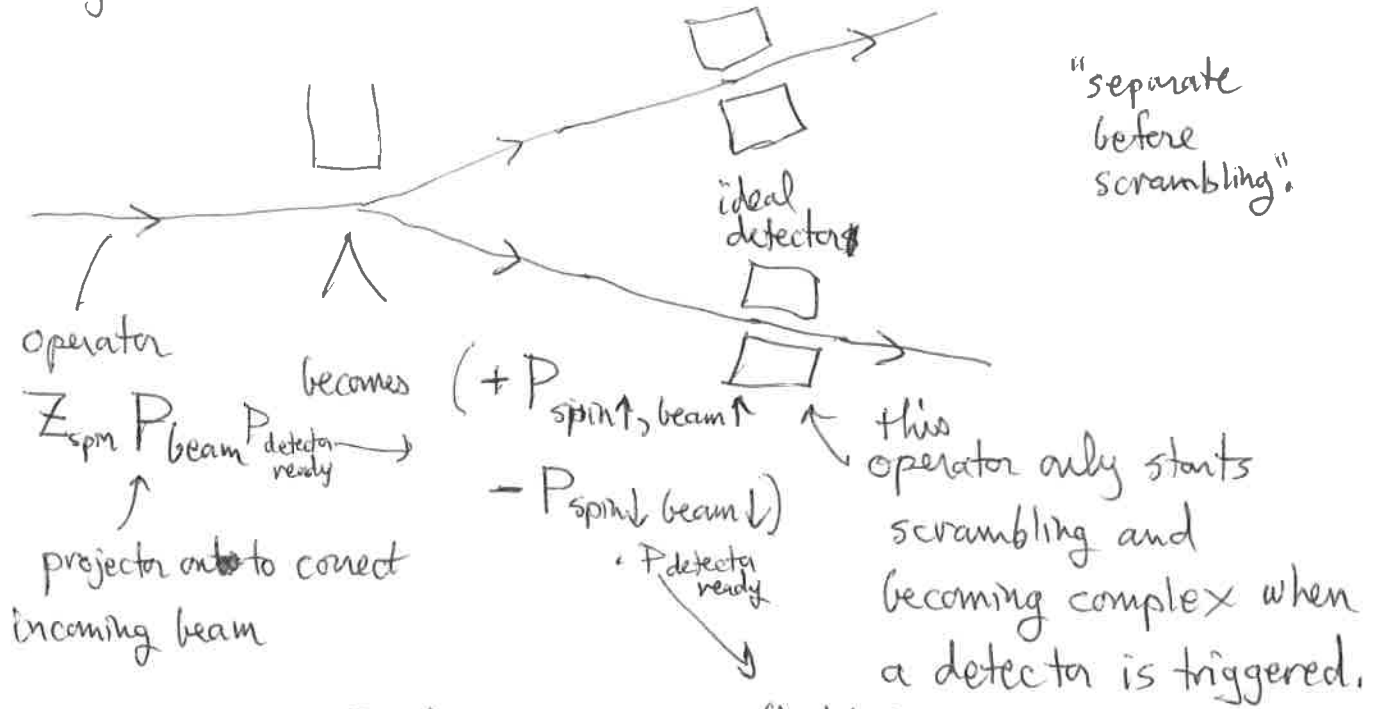 "separate
before
scrambling".
ideal
detectors
operator
Z_spin P_beam P_detector ready
becomes
(+ P_spin↑, beam↑
- P_spin↓ beam↓)
· P_detector ready
projector onto correct
incoming beam
this
operator only starts
scrambling and
becoming complex when
a detector is triggered.